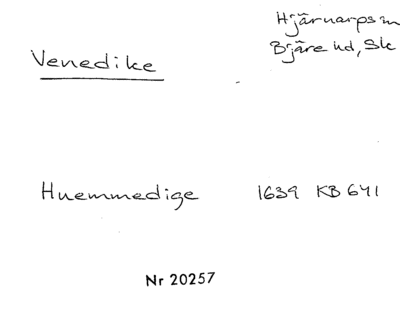 Hjärnarps sn
Venedike
Bjäre hd, Sk
Huemmedige 1639 KB 641
Nr 20257